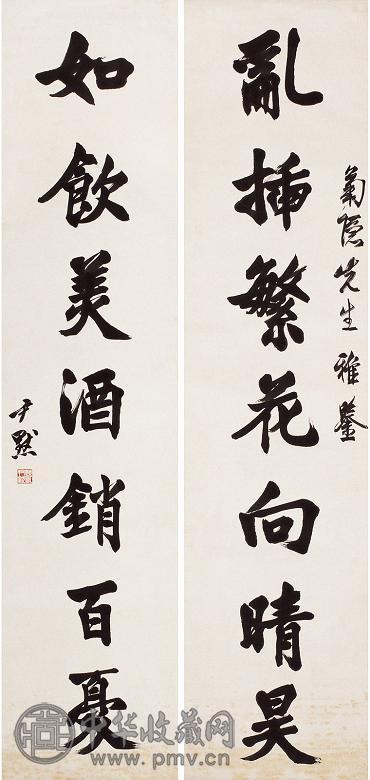 菊隐先生雅鉴
亂插繁花向晴昊
如飲美酒銷百憂
尹默
中华收藏网
www.pmv.cn